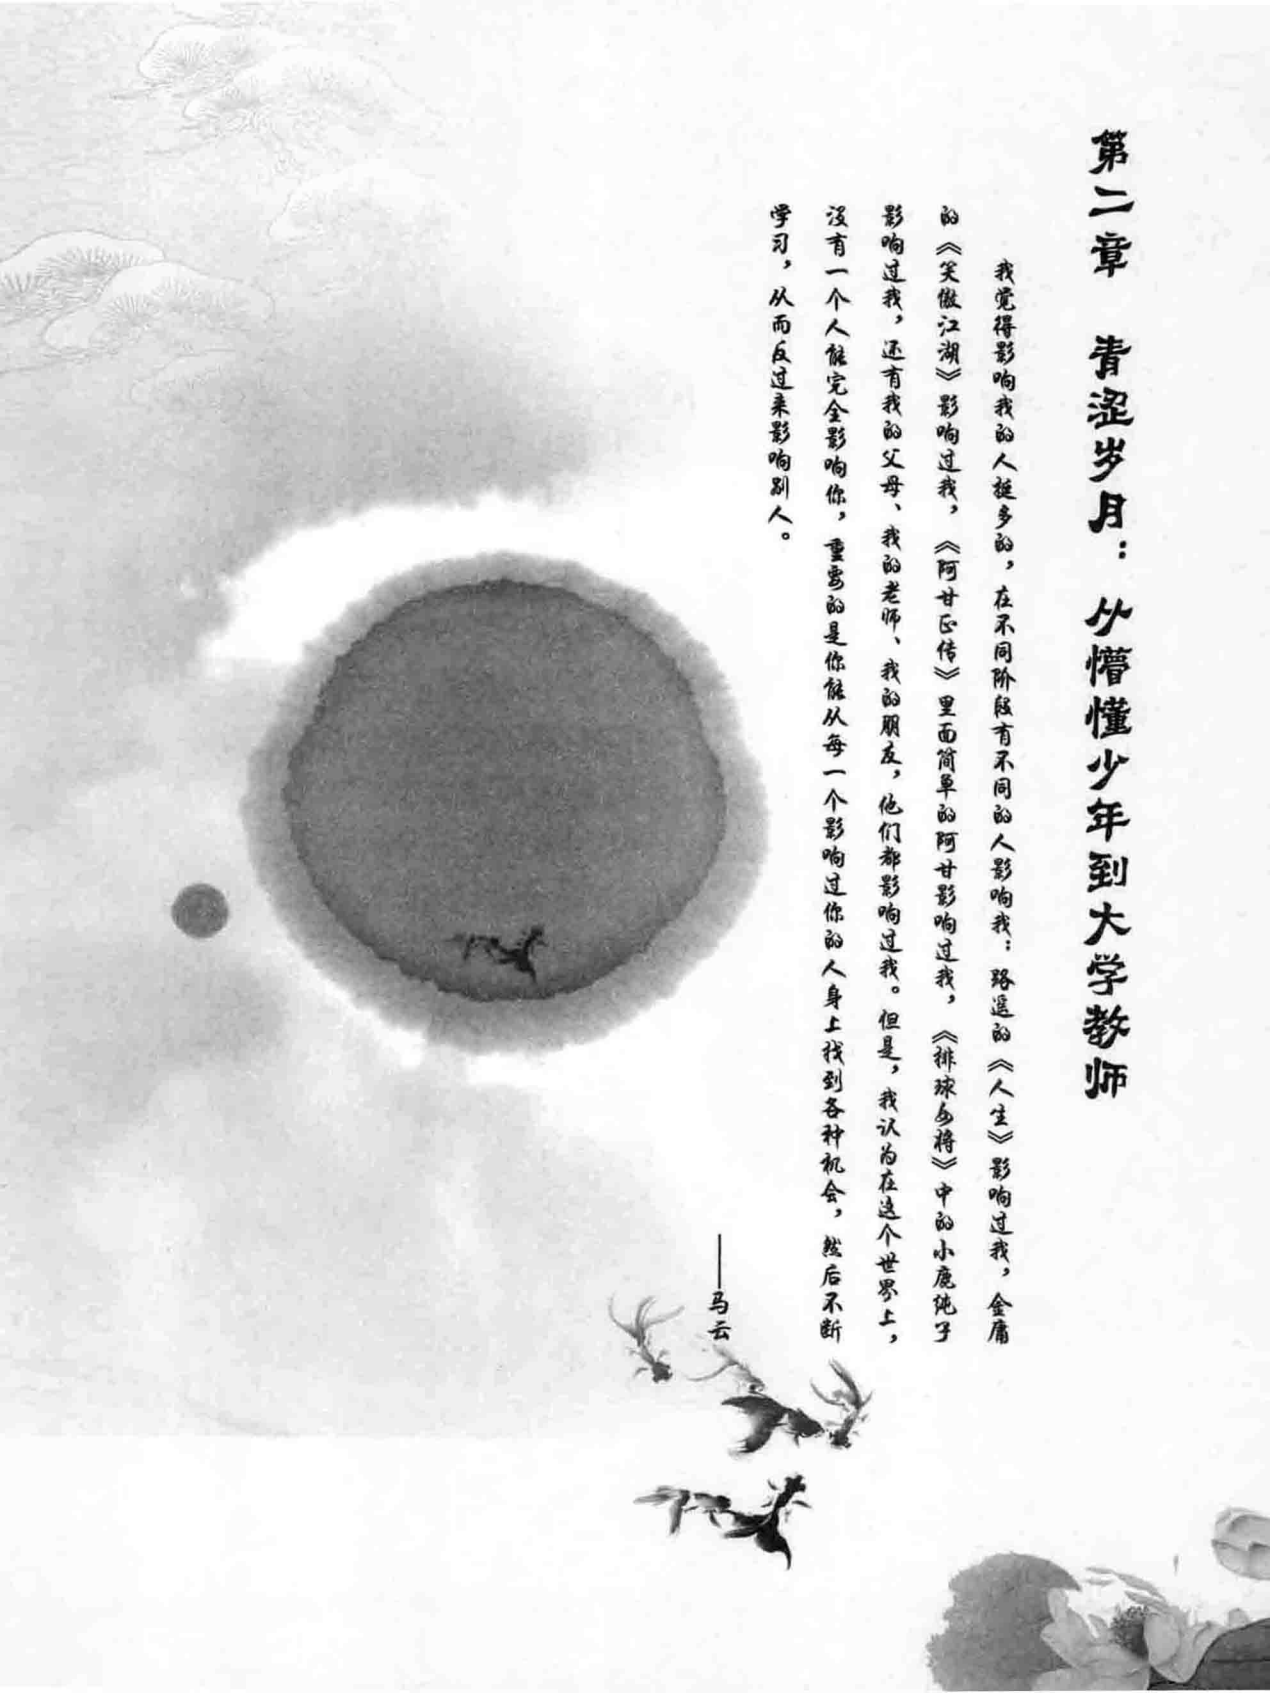 第二章 青涩岁月：从懵懂少年到大学教师
我觉得影响我的人挺多的，在不同阶段有不同的人影响我：路遥的《人生》影响过我，金庸
的《笑傲江湖》影响过我，《阿甘正传》里面简单的阿甘影响过我，《排球女将》中的小鹿纯子
影响过我，还有我的父母、我的老师、我的朋友，他们都影响过我。但是，我认为在这个世界上，
没有一个人能完全影响你，重要的是你能从每一个影响过你的人身上找到各种机会，然后不断
学习，从而反过来影响别人。
——马云